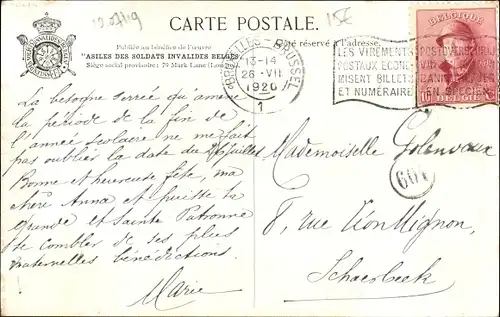 CARTE POSTALE.
Publiée au bénéfice de l'œuvre
"ASILES DES SOLDATS INVALIDES BELGES"
Siège social provisoire : 79 Mark Lane
Côté réservé à l'adresse.
BRUXELLES - BRUSSEL
13-14
26 VII
1920
1
LES VIREMENTS
POSTAUX ECONO-
MISENT BILLETS
ET NUMÉRAIRE
BELGIQUE
10
BELGIE
La besogne serrée qu'amène
la période de la fin de
l'année scolaire ne me fait
pas oublier la date du 26 juillet
Bonne et heureuse fête, ma
chère Anna et puisse ta
Grande et Sainte Patronne
te combler de ses plus
maternelles bénédictions.
Marie
Mademoiselle
8, rue Léon Mignon,
Schaerbeek
601